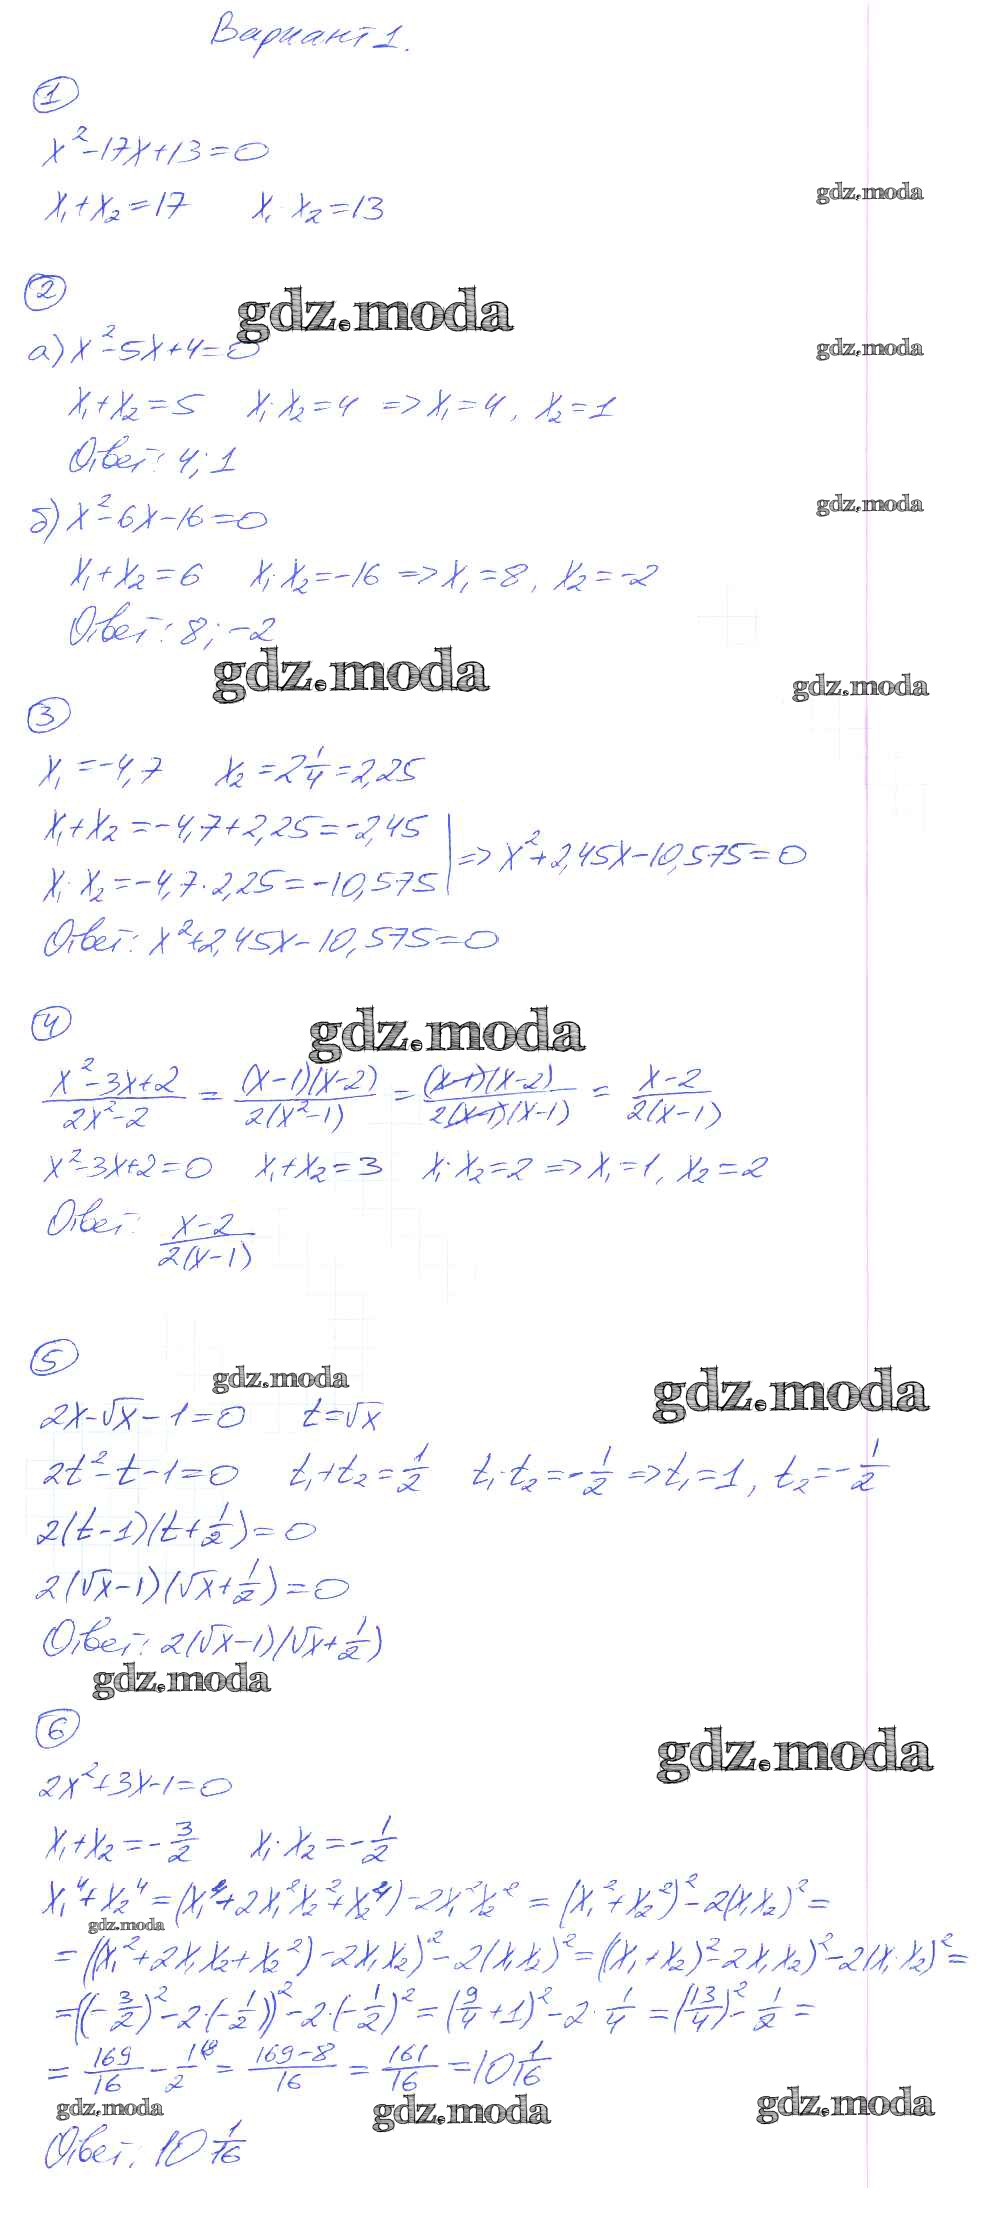 Вариант 1.
1
x²-17x+13=0
x₁+x₂=17 x₁·x₂=13
gdz.moda
2
gdz.moda
а) x²-5x+4=0
gdz.moda
x₁+x₂=5 x₁·x₂=4 => x₁=4, x₂=1
Ответ: 4; 1
б) x²-6x-16=0
gdz.moda
x₁+x₂=6 x₁·x₂=-16 => x₁=8, x₂=-2
Ответ: 8; -2
gdz.moda
gdz.moda
3
x₁=-4,7 x₂=2 1/4=2,25
x₁+x₂=-4,7+2,25=-2,45
x₁·x₂=-4,7·2,25=-10,575 | => x²+2,45x-10,575=0
Ответ: x²+2,45x-10,575=0
4
gdz.moda
(x²-3x+2)/(2x²-2) = ((x-1)(x-2))/(2(x²-1)) = ((x-1)(x-2))/(2(x-1)(x-1)) = (x-2)/(2(x-1))
x²-3x+2=0 x₁+x₂=3 x₁·x₂=2 => x₁=1, x₂=2
Ответ: (x-2)/(2(x-1))
5
gdz.moda
gdz.moda
2x-√x-1=0 t=√x
2t²-t-1=0 t₁+t₂=1/2 t₁·t₂=-1/2 => t₁=1, t₂=-1/2
2(t-1)(t+1/2)=0
2(√x-1)(√x+1/2)=0
Ответ: 2(√x-1)(√x+1/2)
gdz.moda
6
gdz.moda
2x²+3x-1=0
x₁+x₂=-3/2 x₁·x₂=-1/2
x₁⁴+x₂⁴=(x₁⁴+2x₁²x₂²+x₂⁴)-2x₁²x₂²=(x₁²+x₂²)²-2(x₁x₂)²=
gdz.moda
=((x₁²+2x₁x₂+x₂²)-2x₁x₂)²-2(x₁x₂)²=((x₁+x₂)²-2x₁x₂)²-2(x₁·x₂)²=
=((-3/2)²-2·(-1/2))²-2·(-1/2)²=(9/4+1)²-2·1/4=(13/4)²-1/2=
=169/16-1/2=(169-8)/16=161/16=10 1/16
gdz.moda
gdz.moda
gdz.moda
Ответ: 10 1/16